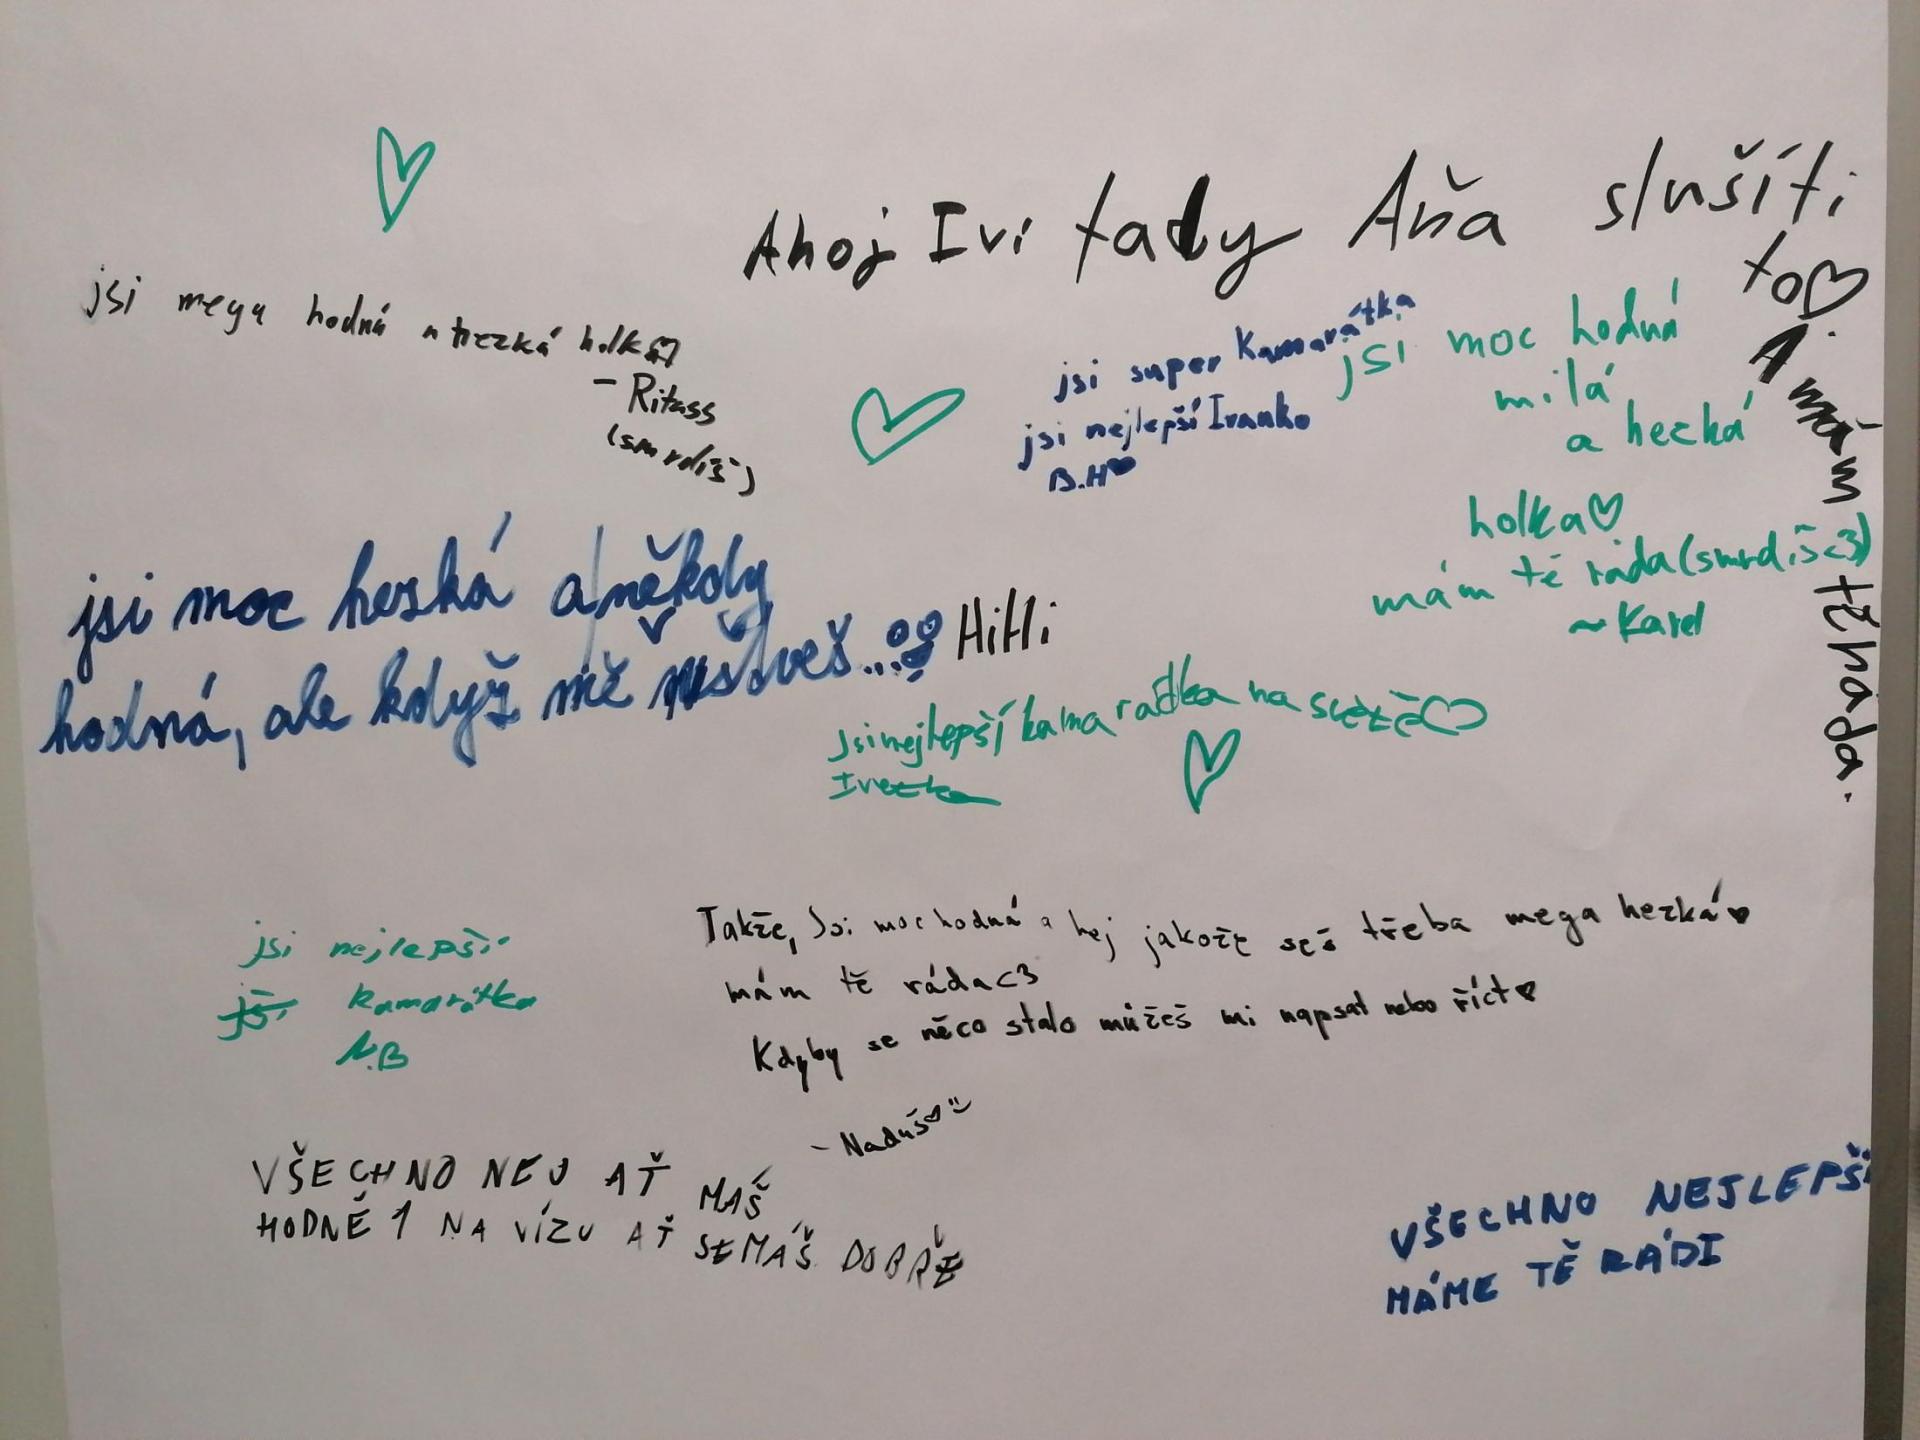 Ahoj Ivi tady Aňa slušíti
to♡. A mám tě ráda.
jsi mega hodná a hezká holka♡
- Ritass
(smrdíš)
jsi super kamarátka
jsi nejlepší Ivanko
B.H♥
jsi moc hodná
milá
a hezká
holka♡
mám tě ráda (smrdíš<3)
~ Karel
jsi moc hezká a někdy
hodná, ale když mě naštveš...
HiHi
jsi nejlepší kamaradka na světě♡
Ivezka
jsi nejlepší
jsi kamarátka
N.B
Takže, Jsi moc hodná a hej jakože seš třeba mega hezká♥
mám tě ráda<3
Kdyby se něco stalo můžeš mi napsat nebo říct♥
- Naduš♡
VŠECHNO NEJ AŤ MAŠ
HODNĚ 1 NA VÍZU AŤ SE MÁŠ DOBŘE
VŠECHNO NEJLEPŠÍ
MÁME TĚ RÁDI